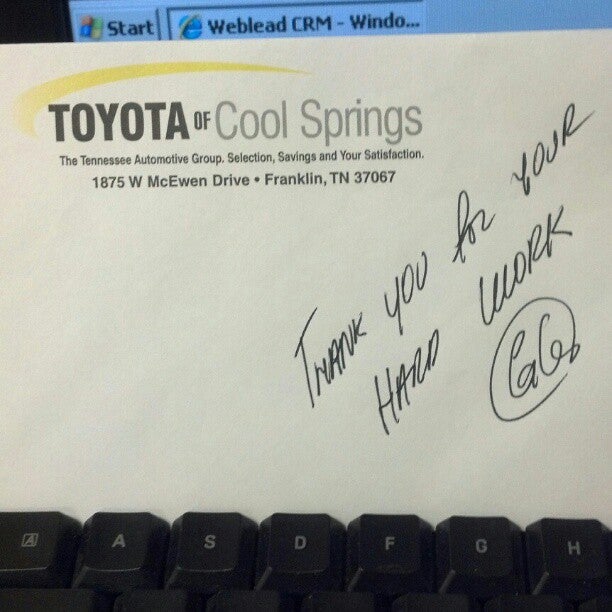 Start Weblead CRM - Windo...
TOYOTA OF Cool Springs
The Tennessee Automotive Group. Selection, Savings and Your Satisfaction.
1875 W McEwen Drive • Franklin, TN 37067
THANK YOU for YOUR
HARD WORK
A
A S D F G H